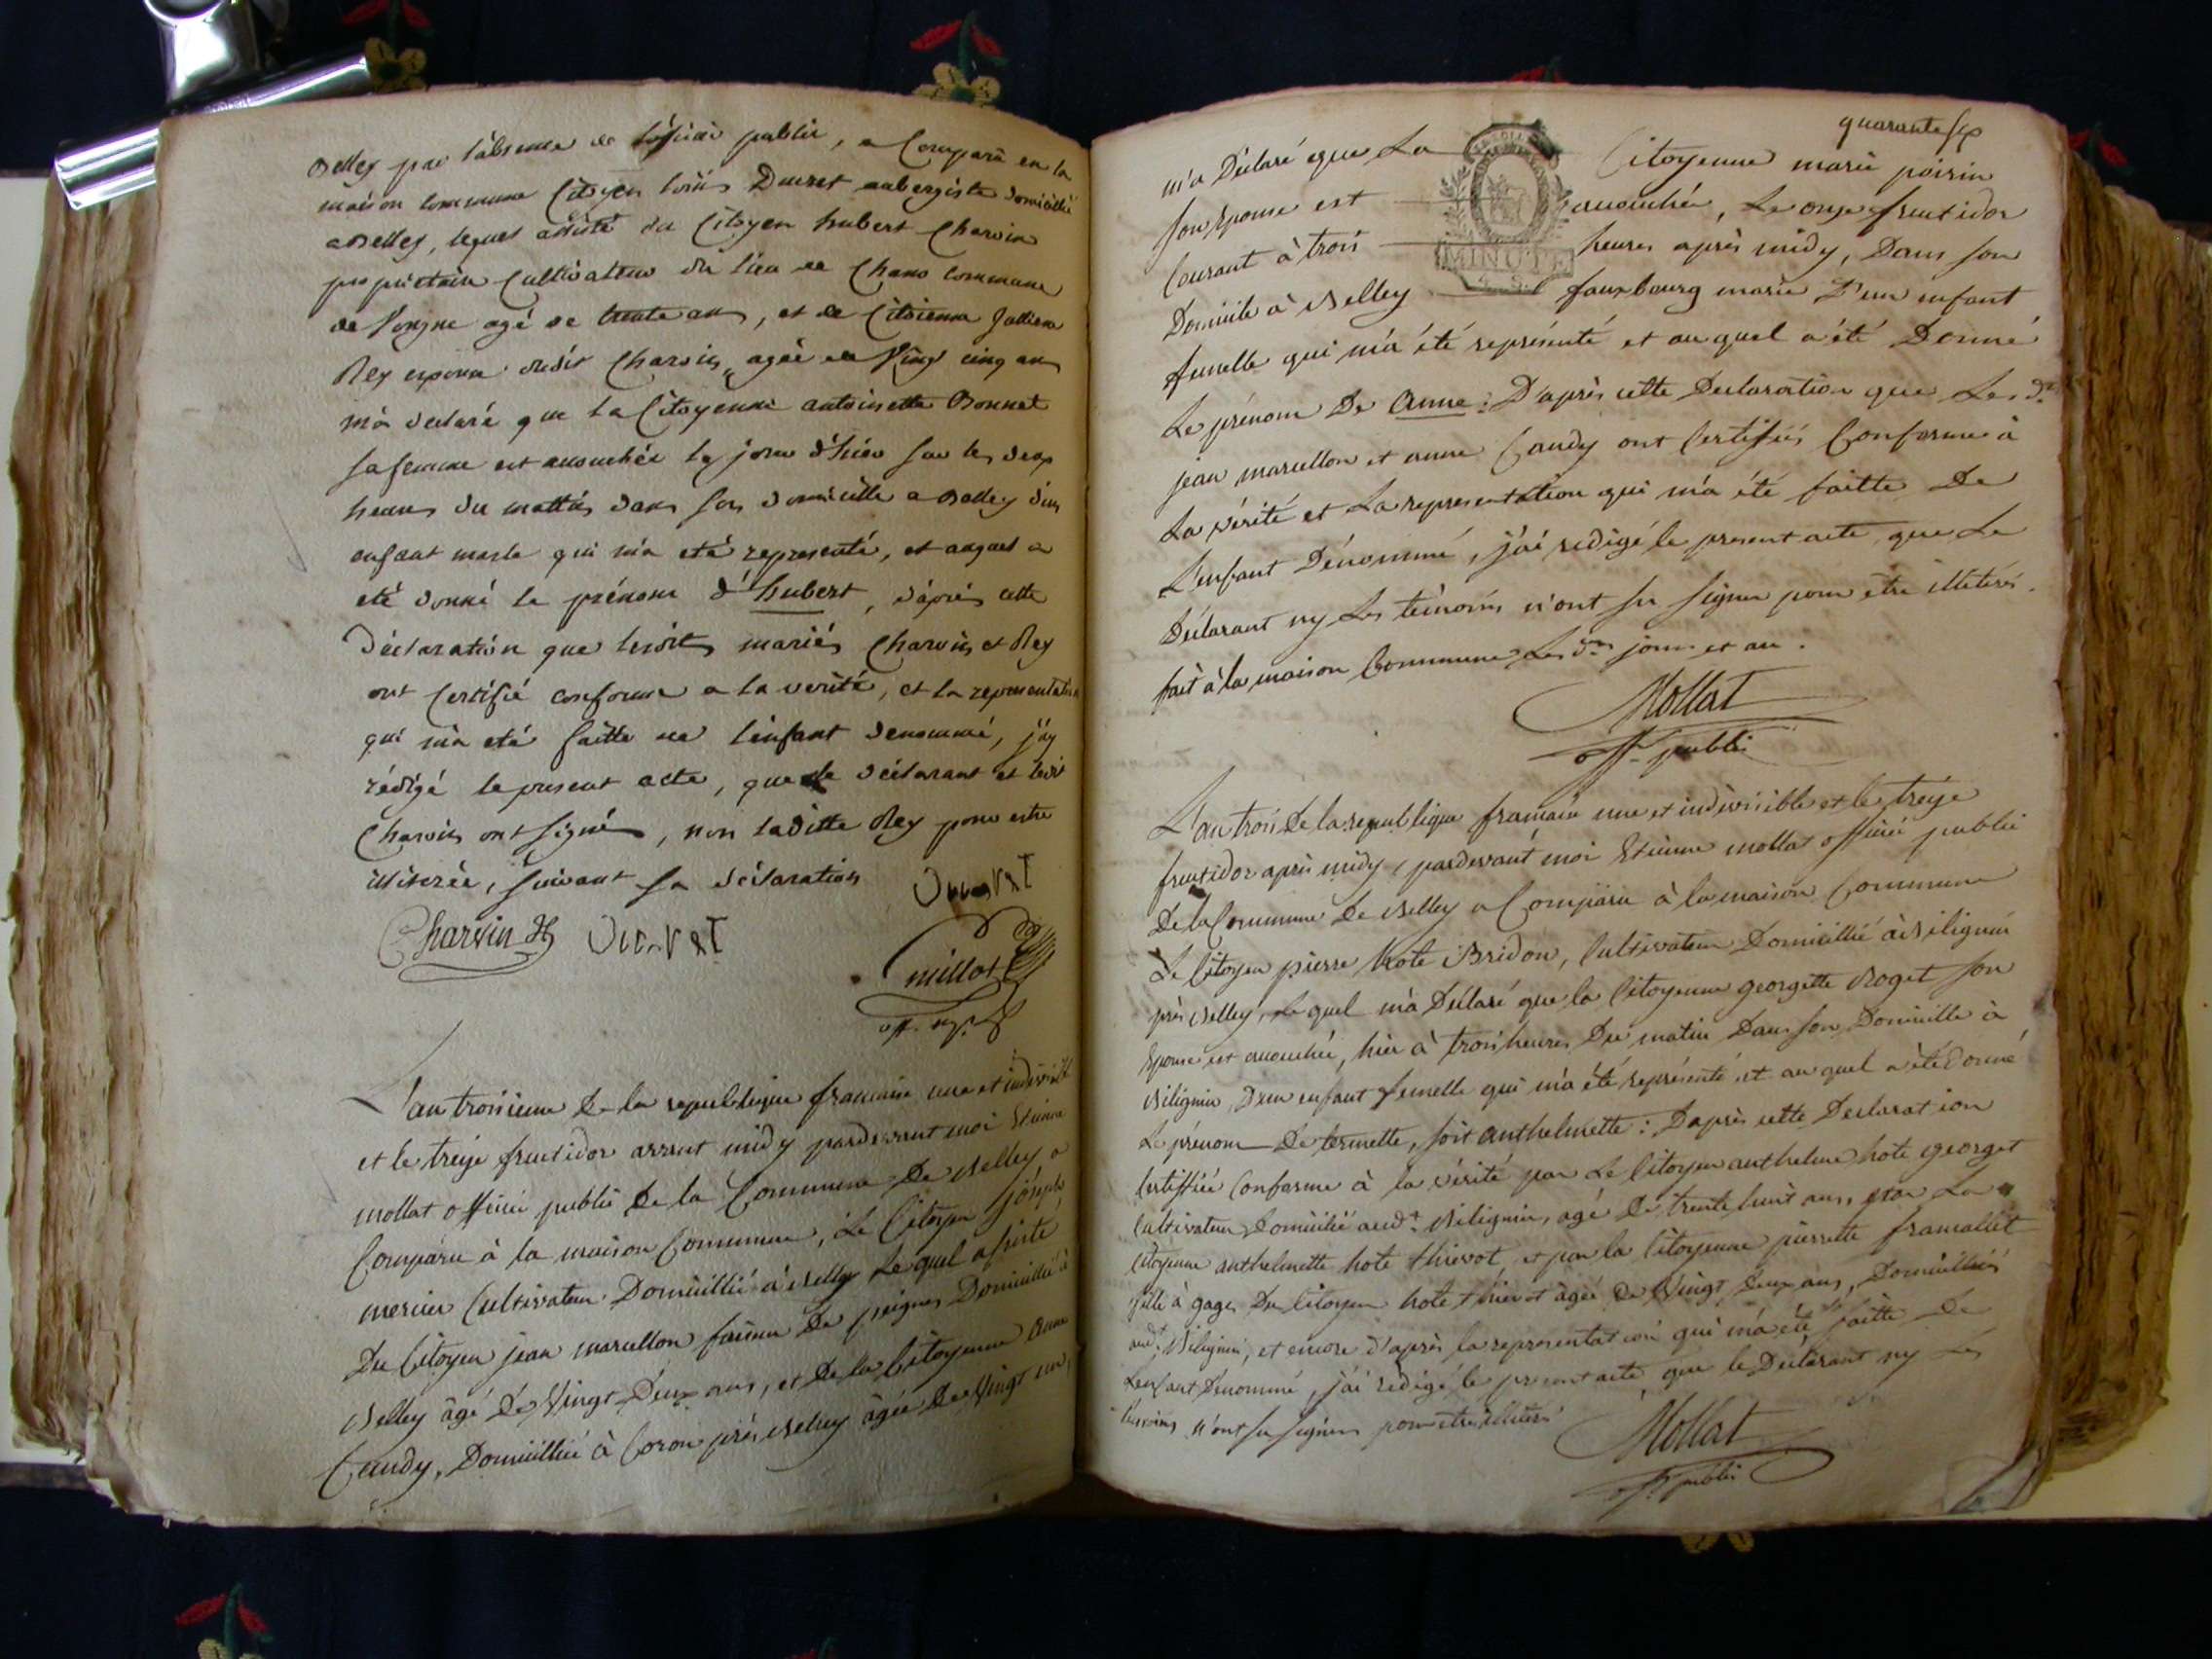 Belley par l'absence de l'officié public, a Comparu en la
maison commune Citoyen loüis Ducret aubergiste domicilié
a Belley, lequel assisté du Citoyen hubert Charvin
propriétaire Cultivateur du lieu de Chano commune
de Vongne agé de trente ans, et de Citoienne Jullienne
Rey epouse dudit Charvin, agée de Vingt cinq ans
m'a declaré que la Citoyenne antoinette Bonnet
sa femme est accouchée le jour d'hier sur les deux
heures du mattin dans son domicille a Belley d'un
enfant masle qui m'a eté representé, et auquel a
eté donné le prénom d'hubert, d'après cette
Déclaration que lesdits mariés Charvin et Rey
ont Certifié conforme a la verité, et la representation
qui m'a eté faitte de l'enfant denommé, j'ay
rédigé le present acte, que le déclarant et ledit
Charvin ont signés, non laditte Rey pour estre
illiterée, suivant sa déclaration
Charvin Ducret Ducret
millot
off. m.
L'an troisieme De la republique francaise une et indivisible
et le treize fructidor avant midy pardevant moi Etienne
mollat officié public De la Commune De Belley a
Comparu à la maison Commune, Le Citoyen joseph
mercier Cultivateur Domicillié à Belley Lequel assisté
Du Citoyen jean marcellon faiseur De peignes Domicillié à
Belley âgé De Vingt Deux ans, et De la Citoyenne Anne
Candy, Domicilliée à Coron près Belley âgée De Vingt un,
quarante sep
m'a Déclaré que La Citoyenne marie poisin
son Epouse est accouchée, Le onze fructidor
Courant à trois heures après midy, Dans son
Domicile à Belley fauxbourg marie D'un enfant
femelle qui m'a été représenté et auquel a été Donné
Le prénom De Anne: D'après cette Declaration que Les dts
jean marcellon et anne Candy ont Certifiés Conforme à
La vérité et La representation qui m'a été faitte De
L'enfant Dénommé, j'ai redigé le present acte, que Le
Déclarant ny Les témoins n'ont su signer pour être illiterés.
fait à la maison Commune Les dts jour et an.
Mollat
off. public
L'an trois De la republique francaise une et indivisible et le treize
fructidor après midy, pardevant moi Etienne mollat officié public
De la Commune De Belley a Comparu à la maison Commune
Le Citoyen pierre hote Bridon, Cultivateur Domicillié à Bilignin
près Belley, Lequel m'a Déclaré que la Citoyenne georgette Roget son
Epouse est accouchée, hier à trois heures Du matin Dans son Domicille à
Bilignin, D'un enfant femelle qui m'a été représenté et auquel a été donné
Le prénom De termette, soit anthelmette: D'après cette Declaration
Certiffiée Conforme à la vérité par Le Citoyen anthelme hote georget
Cultivateur Domicilié aud.t Bilignin, agé De trente huit ans, par La
Citoyenne anthelmette hote thievot, et par la Citoyenne pierrette framallet
fille à gages Du Citoyen hote thievot âgée De Vingt Deux ans, Domicilliés
aud.t Bilignin, et encore d'après la representation qui m'a été faitte De
L'enfant Denommé, j'ai redigé le present acte que le Déclarant ny Les
témoins n'ont su signer pour être illiterés
Mollat
off. public
MINUTE